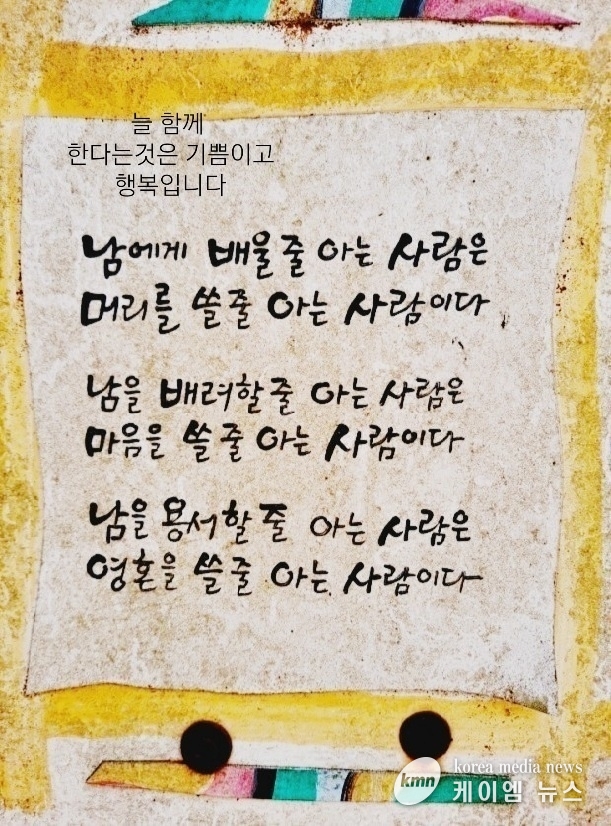 늘 함께
한다는것은 기쁨이고
행복입니다
남에게 배울 줄 아는 사람은
머리를 쓸 줄 아는 사람이다
남을 배려할 줄 아는 사람은
마음을 쓸 줄 아는 사람이다
남을 용서할 줄 아는 사람은
영혼을 쓸 줄 아는 사람이다
korea media news
kmn 케이엠 뉴스